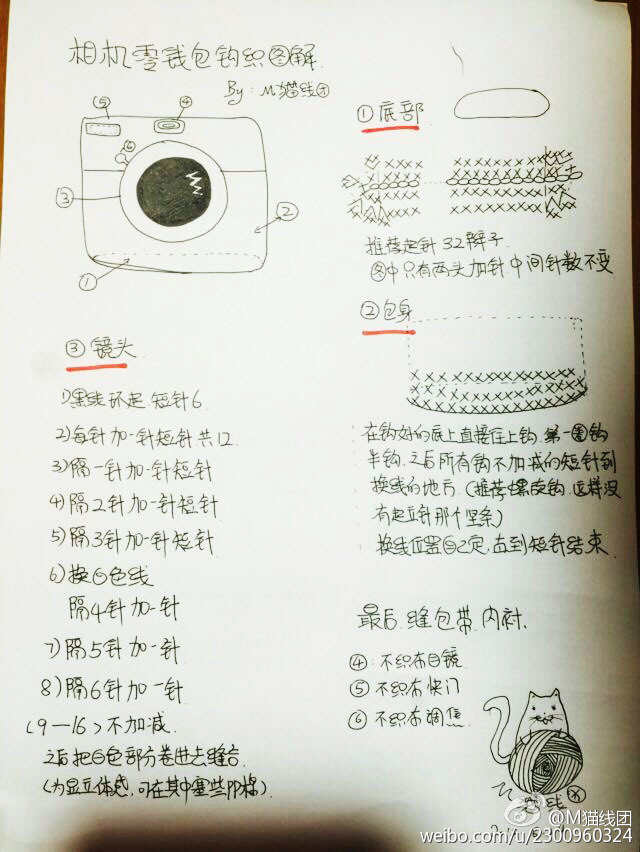 相机零钱包钩织图解
By:M猫线团
⑤
④
⑥
③
②
①
① 底部
推荐起针 32 辫子.
图中只有两头加针.中间针数不变
② 包身
在钩好的底上直接往上钩.第一圈钩
半钩.之后所有钩不加减的短针到
换线的地方.(推荐螺旋钩.这样没
有起立针那个竖条)
换线位置自己定,直到短针结束
③ 镜头
1)黑线环起 短针6.
2)每针加一针短针 共12
3)隔一针加一针短针
4)隔2针加一针短针
5)隔3针加一针短针
6)换白色线
隔4针加一针
7)隔5针加一针
8)隔6针加一针
(9—16)不加减.
之后把白色部分卷进去缝合
(为显立体感,可在其中塞些PP棉).
最后.缝包带.内衬.
④:不织布目镜
⑤ 不织布快门
⑥ 不织布调焦
@M猫线团
weibo.com/u/2300960324